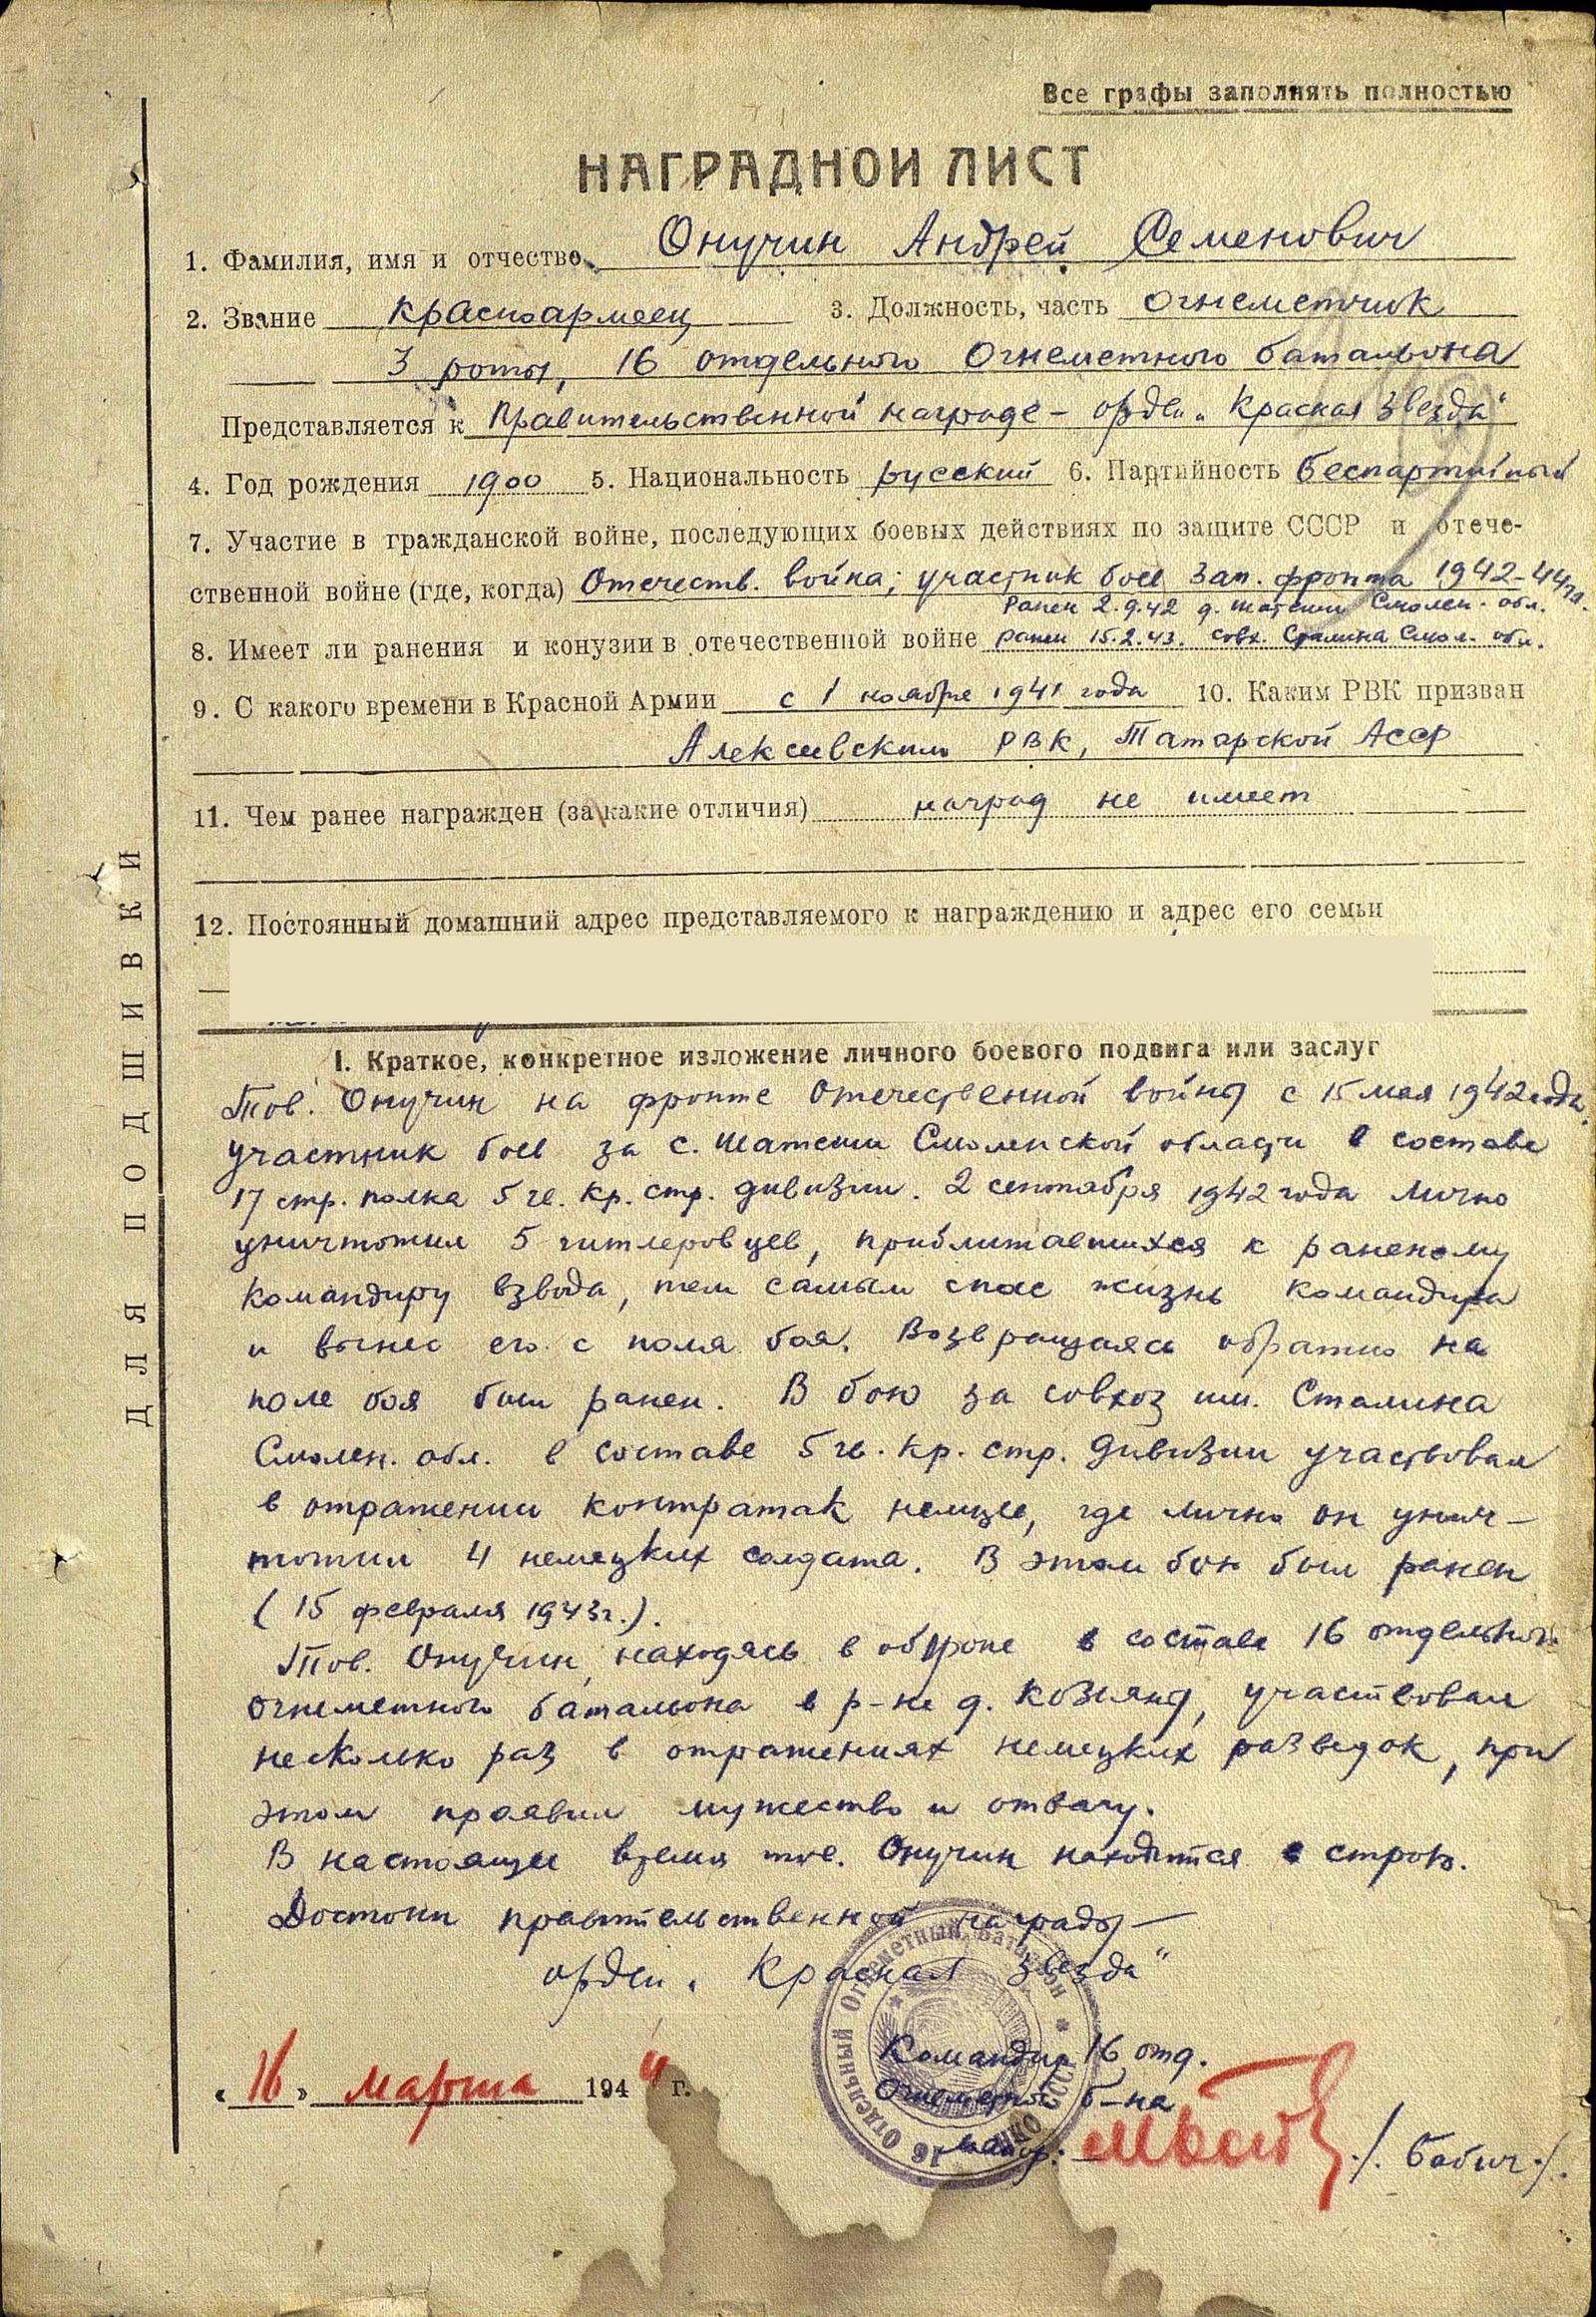 Все графы заполнять полностью
НАГРАДНОЙ ЛИСТ
1. Фамилия, имя и отчество Онучин Андрей Семенович
2. Звание красноармеец 3. Должность, часть огнеметчик
3 роты, 16 отдельного Огнеметного батальона
Представляется к Правительственной награде – орден „Красная Звезда"
4. Год рождения 1900 5. Национальность русский 6. Партийность беспартийный
7. Участие в гражданской войне, последующих боевых действиях по защите СССР и отече-
ственной войне (где, когда) Отечеств. война; участник боев Зап. фронта 1942-44гг.
Ранен 2.9.42 д. Шатеши Смолен. обл.
8. Имеет ли ранения и конузии в отечественной войне ранен 15.2.43. совх. Сталина Смол. обл.
9. С какого времени в Красной Армии с 1 ноября 1941 года 10. Каким РВК призван
Алексеевским РВК, Татарской АССР
11. Чем ранее награжден (за какие отличия) наград не имеет
12. Постоянный домашний адрес представляемого к награждению и адрес его семьи
I. Краткое, конкретное изложение личного боевого подвига или заслуг
Тов. Онучин на фронте Отечественной войны с 15 мая 1942 года.
участник боев за с. Шатеши Смоленской области в составе
17 стр. полка 5 гв. кр. стр. дивизии. 2 сентября 1942 года лично
уничтожил 5 гитлеровцев, приближавшихся к раненому
командиру взвода, тем самым спас жизнь командира
и вынес его с поля боя. Возвращаясь обратно на
поле боя был ранен. В бою за совхоз им. Сталина
Смолен. обл. в составе 5 гв. кр. стр. дивизии участвовал
в отражении контратак немцев, где лично он унич-
тожил 4 немецких солдата. В этом бою был ранен
(15 февраля 1943г.).
Тов. Онучин, находясь в обороне в составе 16 отдельного
огнеметного батальона в р-не д. Козяны, участвовал
несколько раз в отражениях немецких разведок, при
этом проявил мужество и отвагу.
В настоящее время тов. Онучин находится в строю.
Достоин правительственной награды —
орден „Красная Звезда"
Командир 16 отд.
Огнеметного б-на
„16" марта 1944 г.
майор: /Бабич/.
16 Отдельный Огнеметный Батальон * НКО СССР
ДЛЯ ПОДШИВКИ